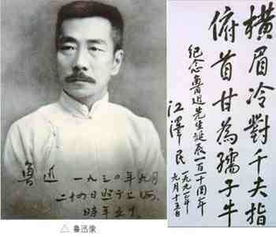 魯迅
一九三〇年九月
二十四日照于上海
時年五十
△ 鲁迅像
横眉冷對千夫指
俯首甘為孺子牛
纪念鲁迅先生诞辰一百十周年
江澤民
一九九一年
九月十五日